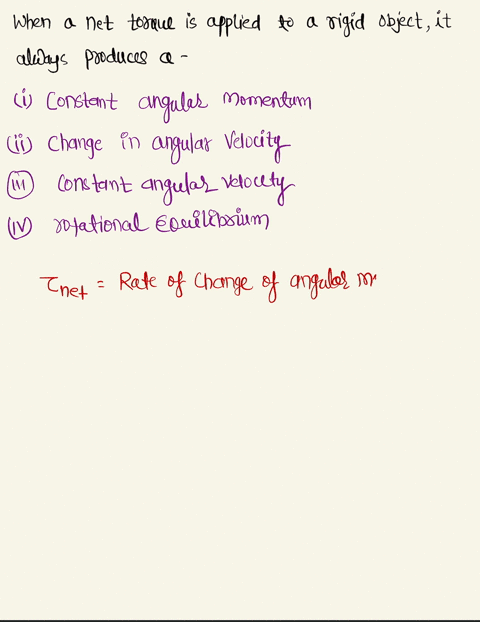 When a net torque is applied to a rigid object, it
always produces a -
(i) Constant angular Momentum
(ii) Change in angular Velocity
(iii) Constant angular velocity
(iv) rotational Equilibrium
τnet = Rate of Change of angular m